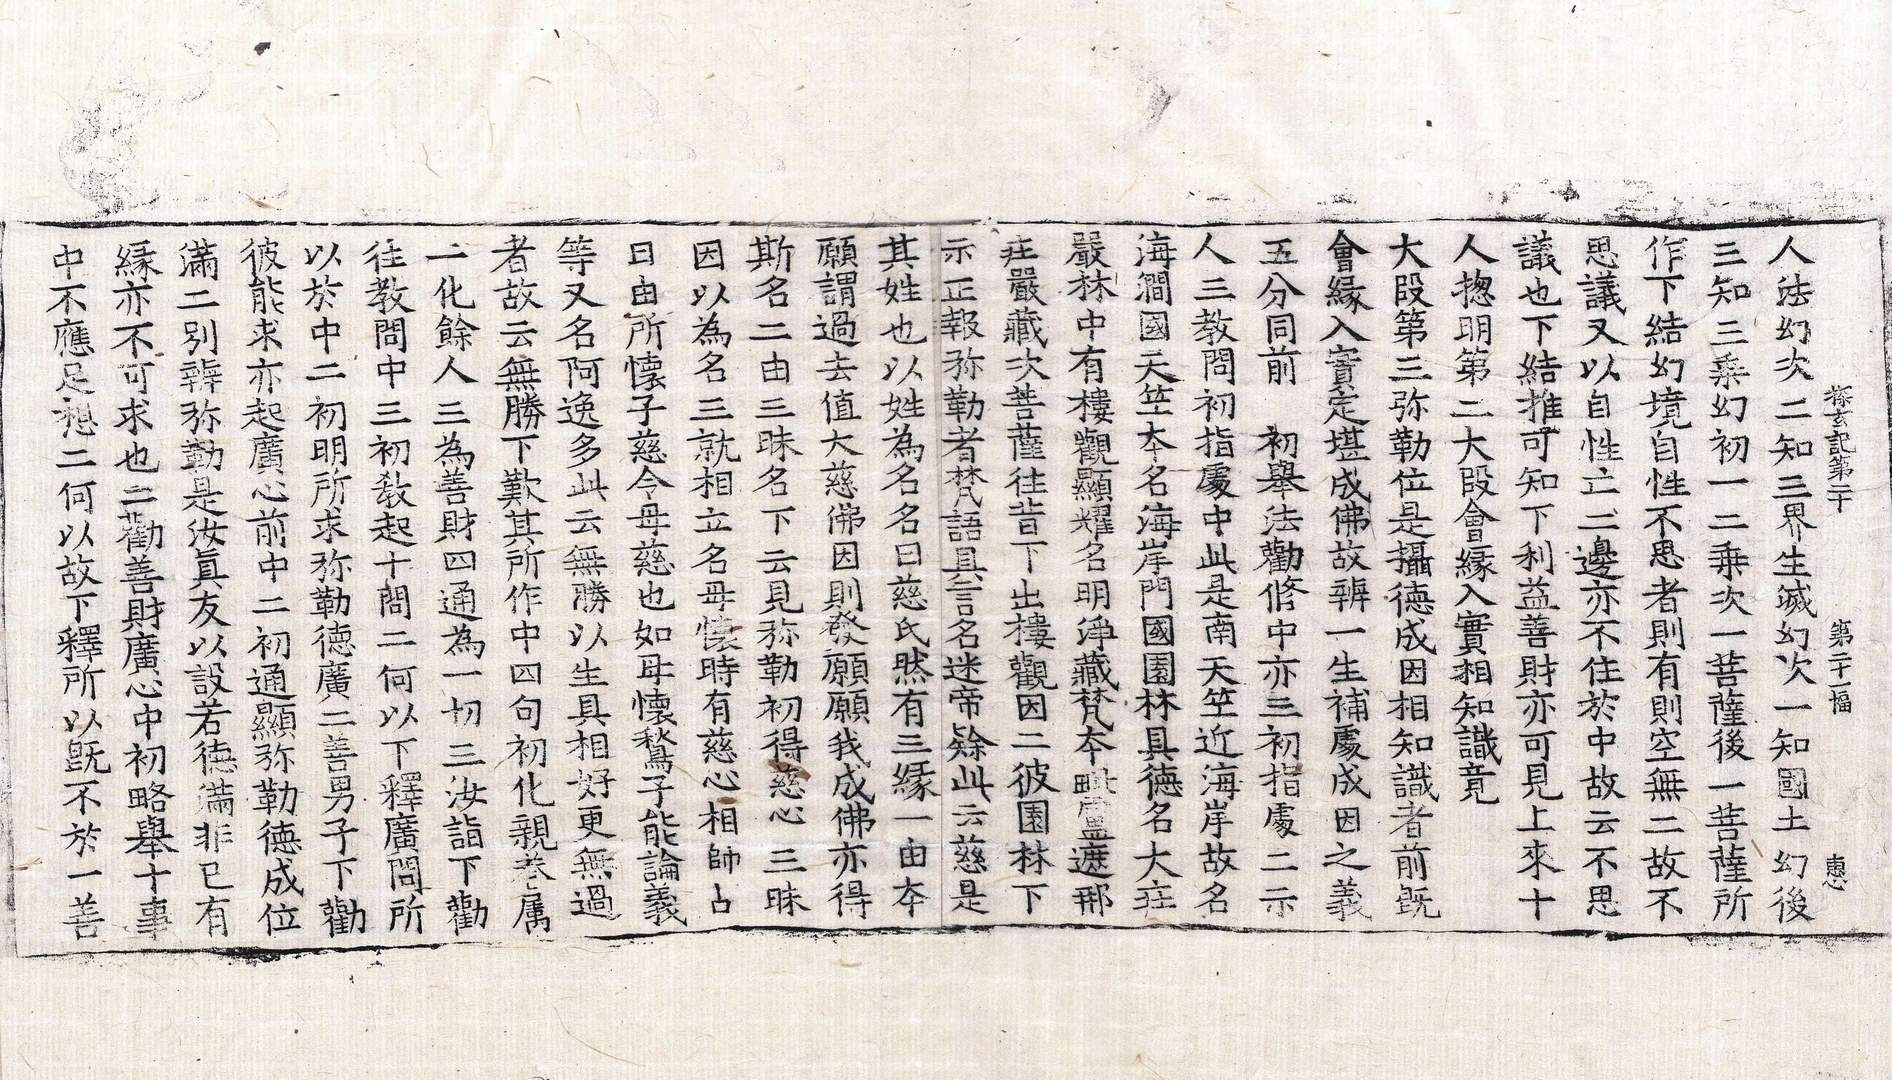 探玄記第二十　第二十一幅　惠
人法幻次二知三界生滅幻次一知國土幻後
三知三乗幻初一二乗次一菩薩後一菩薩所
作下結幻境自性不思者則有則空無二故不
思議又以自性亡二邊亦不住於中故云不思
議也下結推可知下利益善財亦可見上來十
人揔明第二大段會縁入實相知識竟
大段第三弥勒位是攝德成因相知識者前既
會縁入實定堪成佛故辨一生補處成因之義
五分同前　初舉法勸俻中亦三初指處二示
人三教問初指處中此是南天笁近海岸故名
海澗國天笁夲名海岸門國園林具德名大疘
嚴林中有樓觀顯耀名明淨藏梵夲毗盧遮那
疘嚴藏次菩薩往昔下出樓觀因二彼園林下
示正報弥勒者梵語具言名迷帝㝹此云慈是
其姓也以姓為名名曰慈氏然有三縁一由夲
願謂過去值大慈佛因則發願願我成佛亦得
斯名二由三昧名下云見弥勒初得慈心三昧
因以為名三就相立名母懷時有慈心相師占
曰由所懷子慈令母慈也如母懷鶖子能論義
等又名阿逸多此云無勝以生具相好更無過
者故云無勝下歎其所作中四句初化親眷属
二化餘人三為善財四通為一切三汝詣下勸
往教問中三初教起十問二何以下釋廣問所
以於中二初明所求弥勒德廣二善男子下勸
彼能求亦起廣心前中二初通顯弥勒德成位
滿二別辨弥勒是汝真友以設若德滿非已有
縁亦不可求也二勸善財廣心中初略舉十事
中不應足想二何以故下釋所以既不於一善